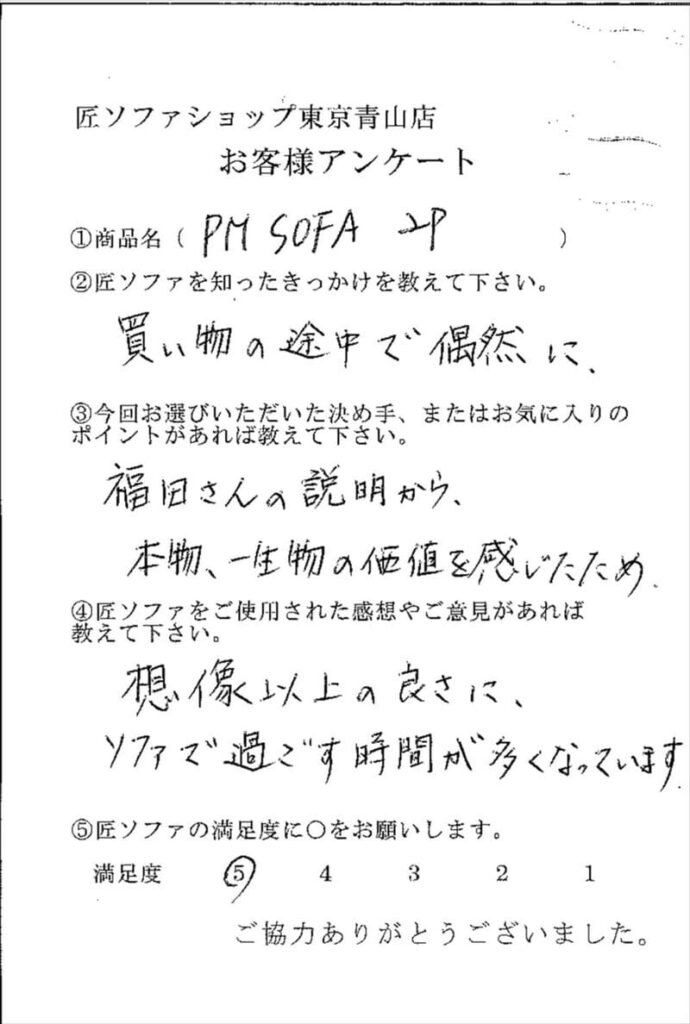 匠ソファショップ東京青山店
お客様アンケート
①商品名（ PM SOFA 2P ）
②匠ソファを知ったきっかけを教えて下さい。
買い物の途中で偶然に、
③今回お選びいただいた決め手、またはお気に入りの
ポイントがあれば教えて下さい。
福田さんの説明から、
本物、一生物の価値を感じたため.
④匠ソファをご使用された感想やご意見があれば
教えて下さい。
想像以上の良さに、
ソファで過ごす時間が多くなっています
⑤匠ソファの満足度に○をお願いします。
満足度 5 4 3 2 1
ご協力ありがとうございました。